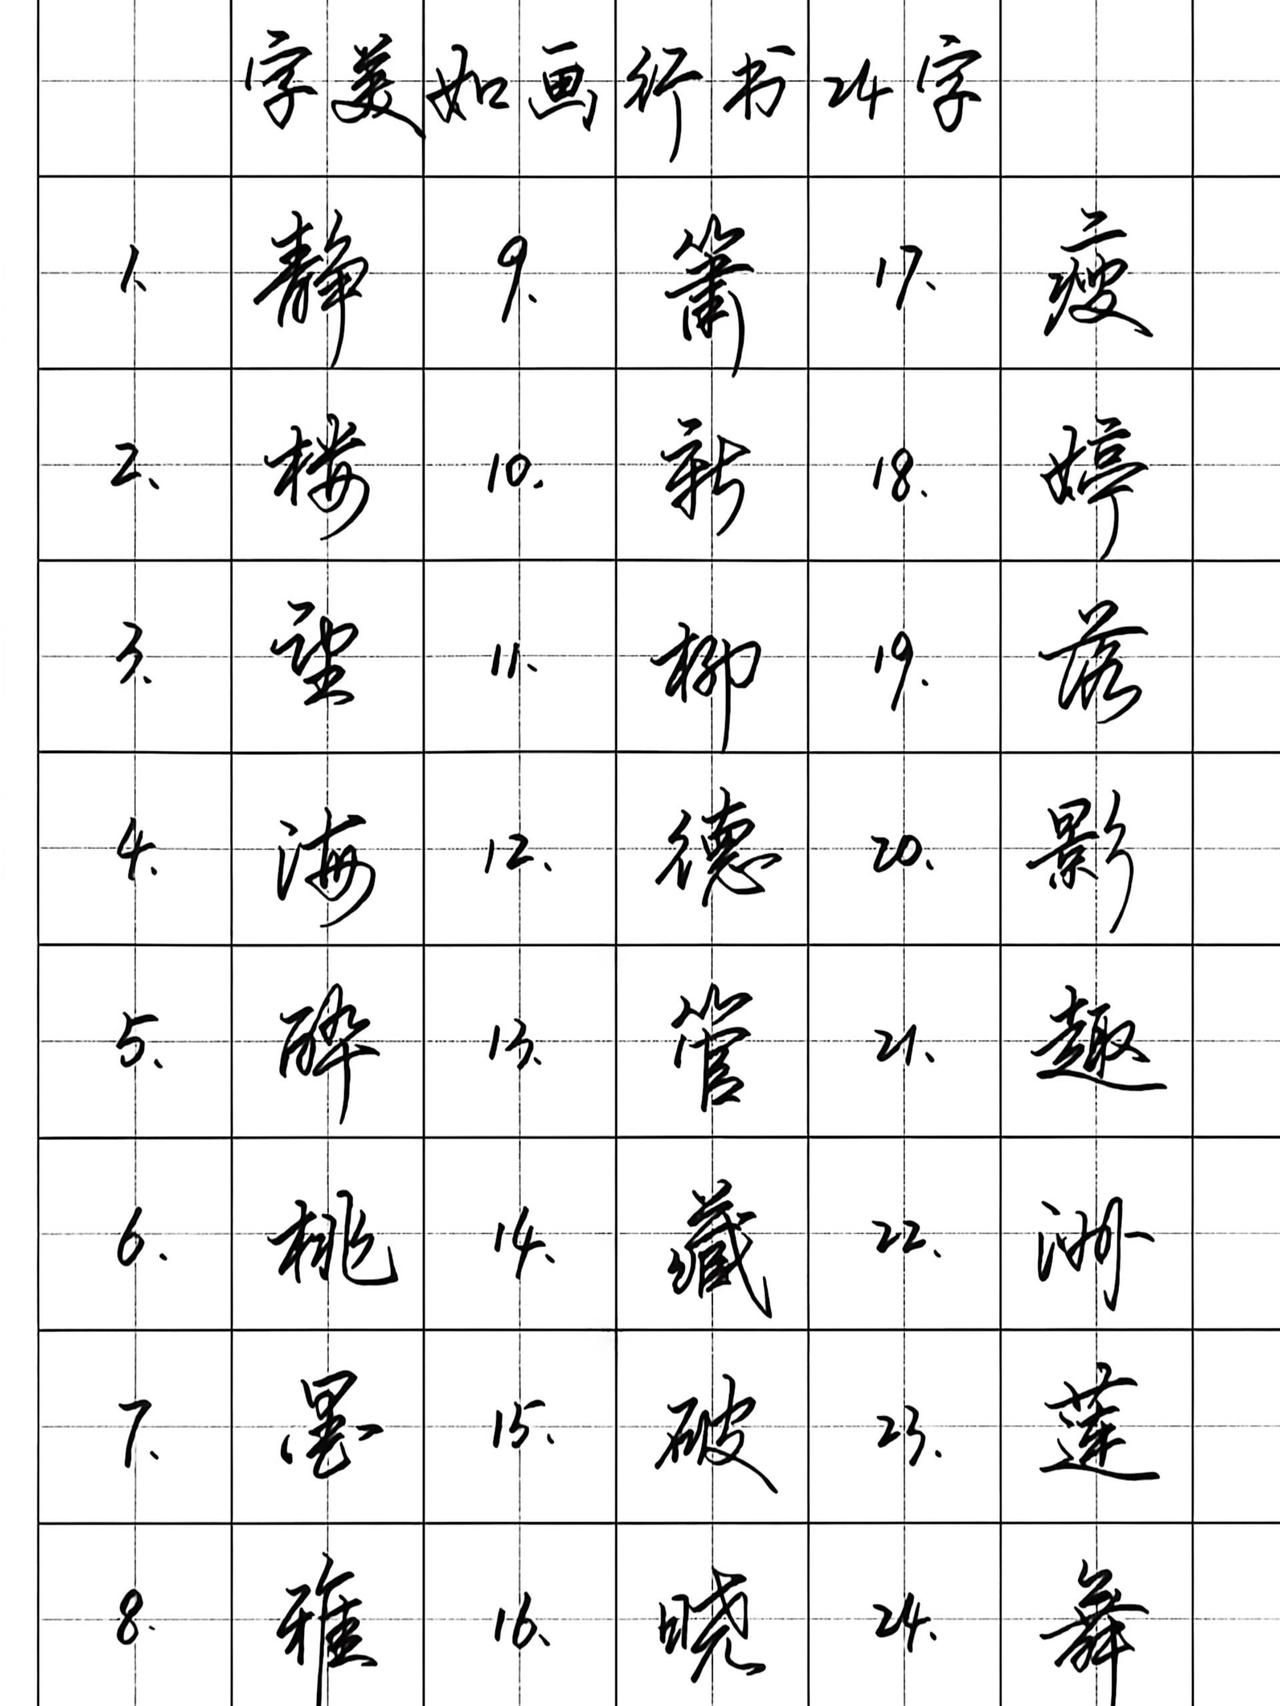 字美如画行书24字
1、静 9、箫 17、瘦
2、楼 10、新 18、婷
3、望 11、柳 19、落
4、海 12、德 20、影
5、醉 13、管 21、趣
6、桃 14、藏 22、洲
7、墨 15、破 23、莲
8、雅 16、晓 24、舞